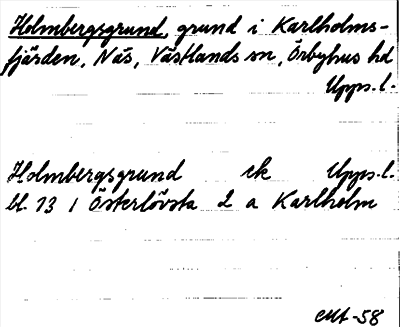 Holmbergsgrund, grund i Karlholms-
fjärden, Näs, Västlands sn, Örbyhus hd
Upps. l.
Holmbergsgrund ek Upps. l.
bl. 73 1 Österlövsta 2 a Karlholm
-58